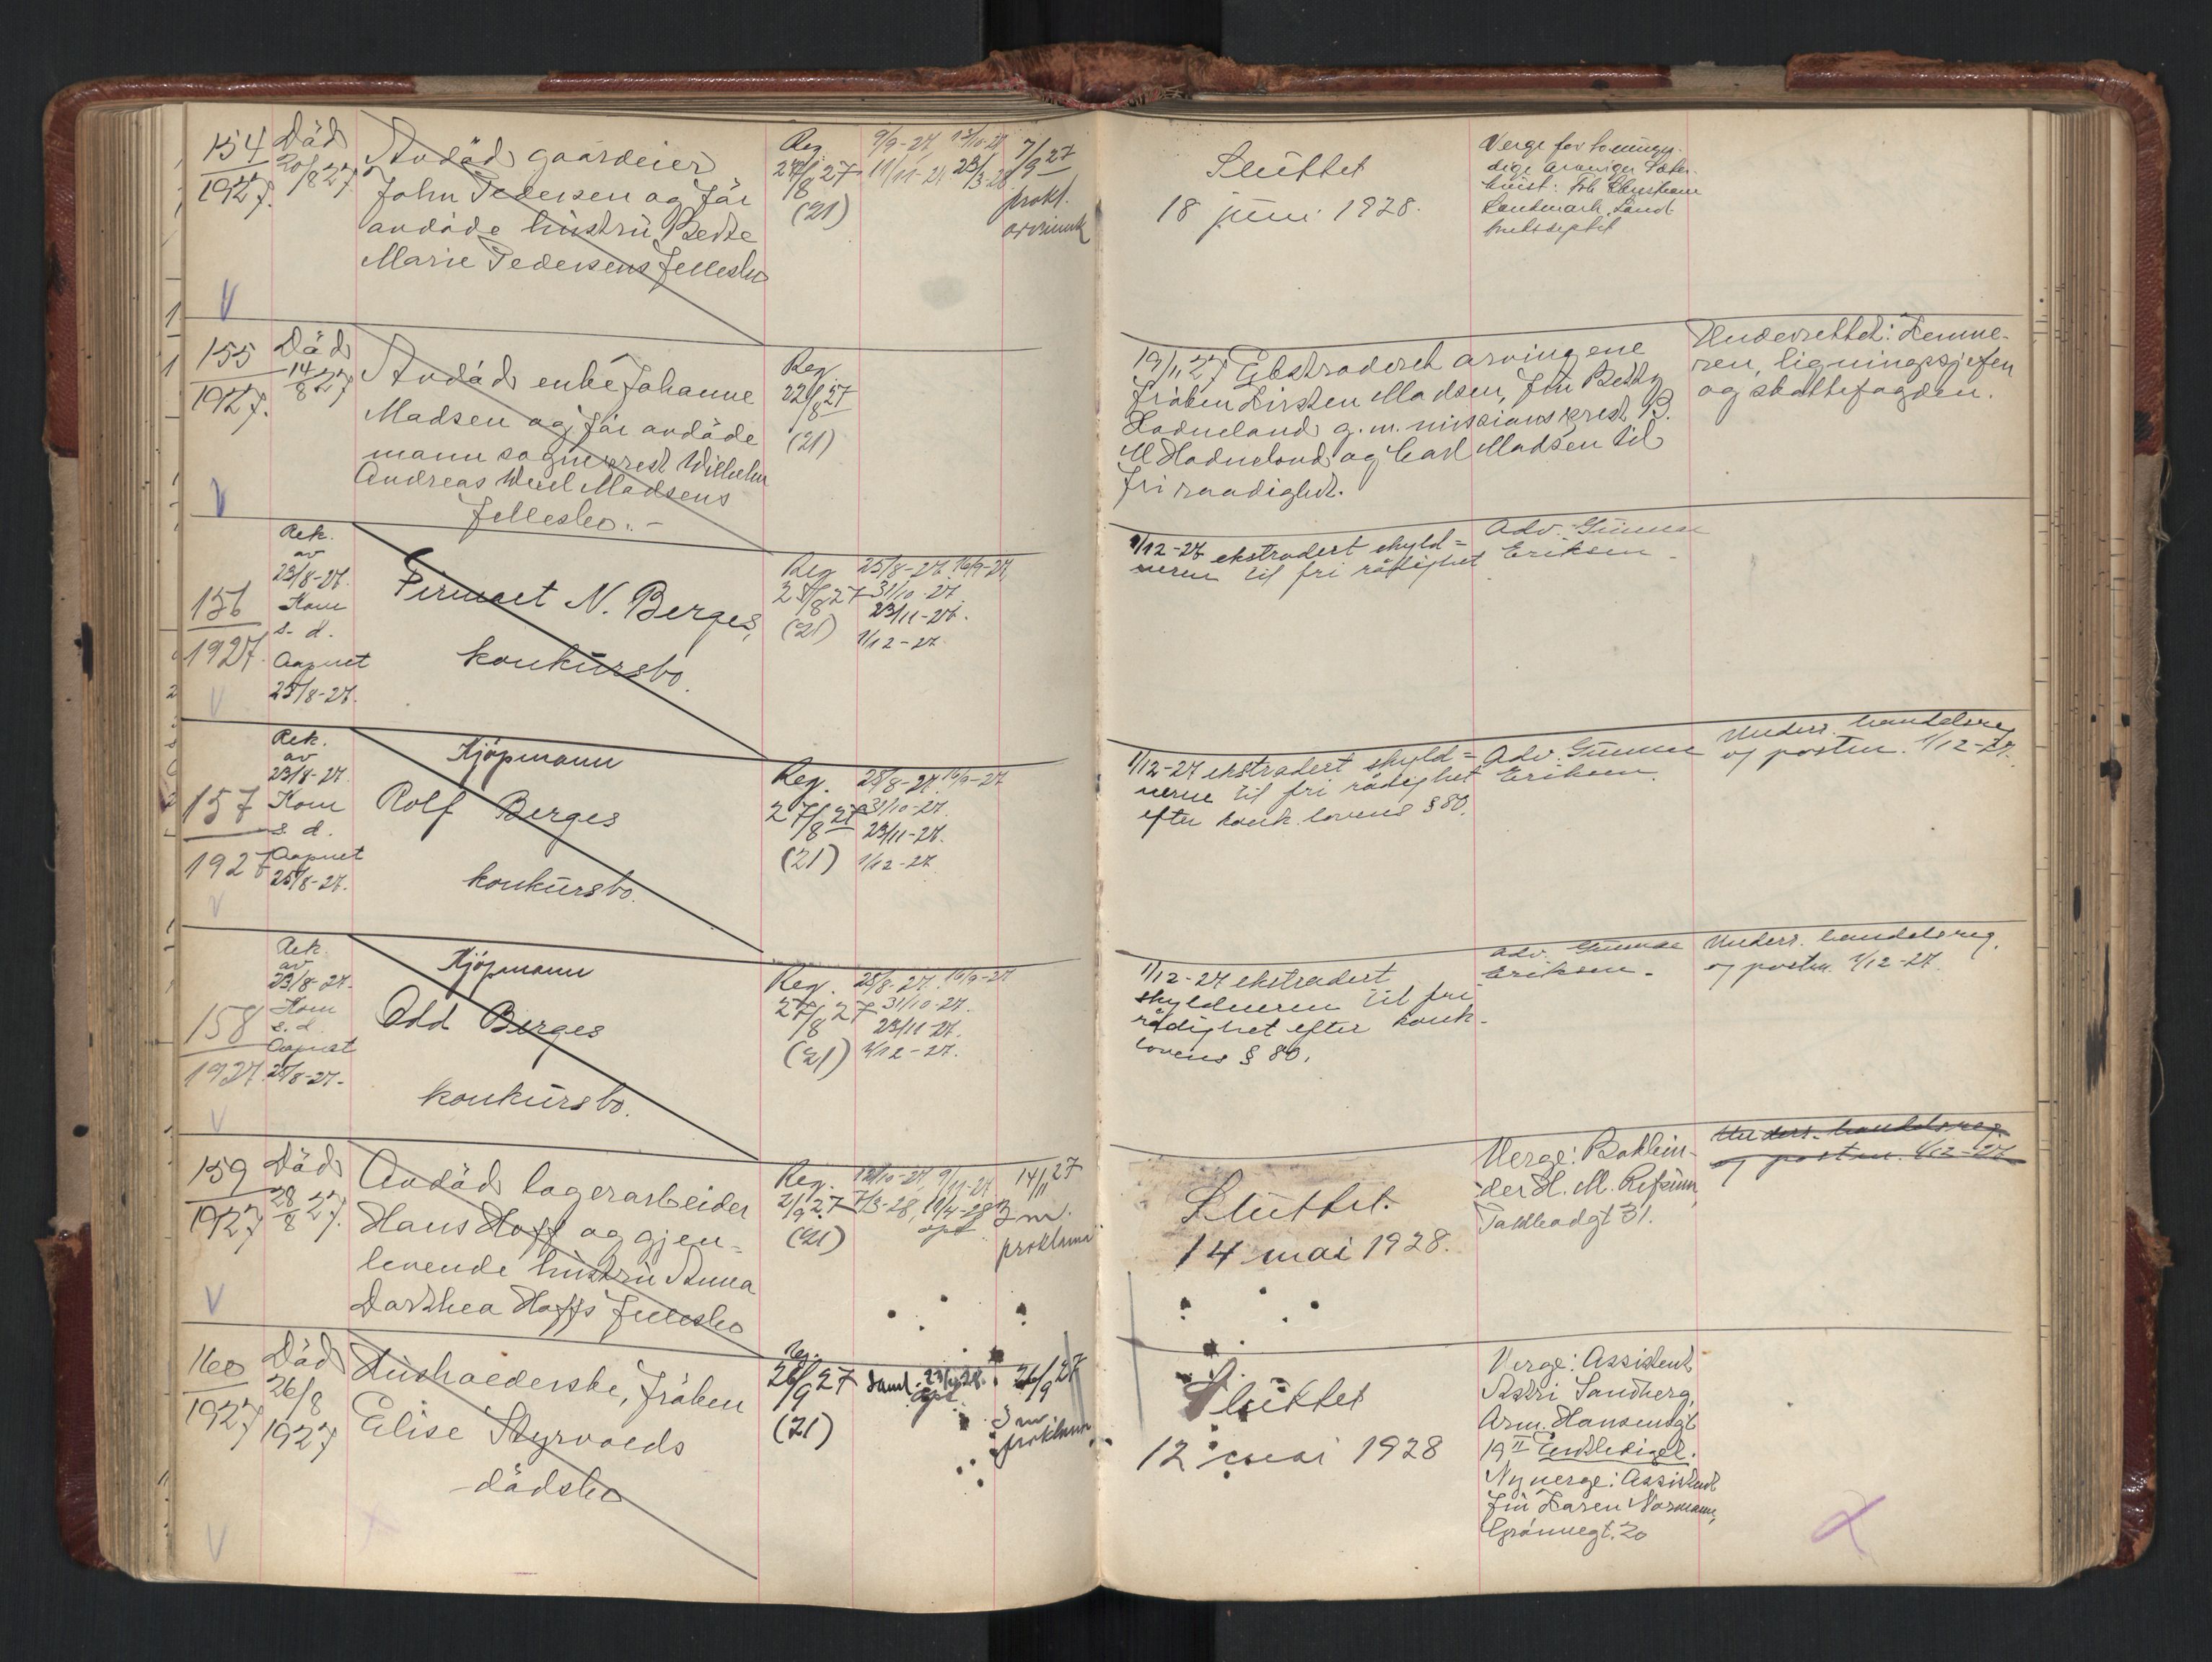 154
1927.
Död
20/8 27.
Avdöd gaardeier
John Pedersen og før
avdøde hustru Bertе
Marie Pedersens fellesbo
Reg.
24/8 27
(21)
9/9-27, 13/10-27
11/11-27 23/3-28
7/9 27
prokl.
Sluttet
18 juni 1928.
Verge for
dige arvinger
155
1927.
Död
14/8 27
Avdöd enke Johanne
Madsen og før avdøde
mann sogneprest Wilhelm
Andreas Madsens
fellesbo.-
Reg.
22/8 27
(21)
19/11 27 Ekstradert arvingene
frøken Kirsten Madsen, fru Betty
Hodneland g. m. missionsprest B.
M Hodneland og Carl Madsen til
fri raadighet.
Underrettet: Kemne-
ren, ligningssjefen
og skattefogden.
156
1927.
Rek.
av
23/8-27.
Kom
s. d.
Aapnet
25/8-27.
Firmaet N. Berges,
konkursbo.
Reg
27/8 27
(21)
25/8-27. 16/9-27,
31/10-27.
23/11-27.
1/12-27.
1/12-27 ekstradert skyld=
neren til fri rådighet
Adv. Gunnar
Eriksen
157
1927
Rek.
av
23/8-27.
Kom
s. d.
Aapnet
25/8-27.
Kjöpmann
Rolf Berges
konkursbo.
Reg.
27/8 27
(21)
25/8-27. 16/9-27
31/10-27.
23/11-27.
1/12-27.
1/12-27 ekstradert skyld=
neren til fri rådighet
efter konk. lovens § 80.
Adv. Gunnar
Eriksen.
Underr. handelsreg
og postm. 1/12-27.
158
1927.
Rek.
av
23/8-27.
Kom
s. d.
Aapnet
25/8-27.
Kjöpmann
Odd Berges
konkursbo.
Reg.
27/8 27
(21)
25/8-27. 16/9-27
31/10-27.
23/11-27.
1/12-27.
1/12-27 ekstradert
skyldneren til fri
rådighet efter konk-
lovens § 80.
Adv. Gunnar
Eriksen.
Underr. handelsreg.
og postm. 1/12-27.
159
1927
Död
28/8 27.
Avdöd lagerarbeider
Hans Hoff og gjen=
levende hustru Anna
Dorthea Hoffs fellesbo
Reg.
2/9 27
(21)
12/10-27, 9/11-27
7/3-28, 19/4-28
14/11 27
3 m.
proklama
Sluttet.
14 mai 1928.
Verge: Bokbin-
der H. M.
31.
Underr. handelsreg.
og postm. 1/12-27
160
1927
Död
26/8
1927
Husholderske, frøken
Elise Styrvolds
dødsbo
Reg.
26/9 27
(21)
Saml. 23/4 28.
26/9 27
3 m.
proklama
Sluttet
12 mai 1928
Verge: Assistent
Astri Sandberg,
Arm. Hansensgt
19 II Entlediget.
Ny verge: Assistent
fru Karen Normann,
Grønnegt. 20